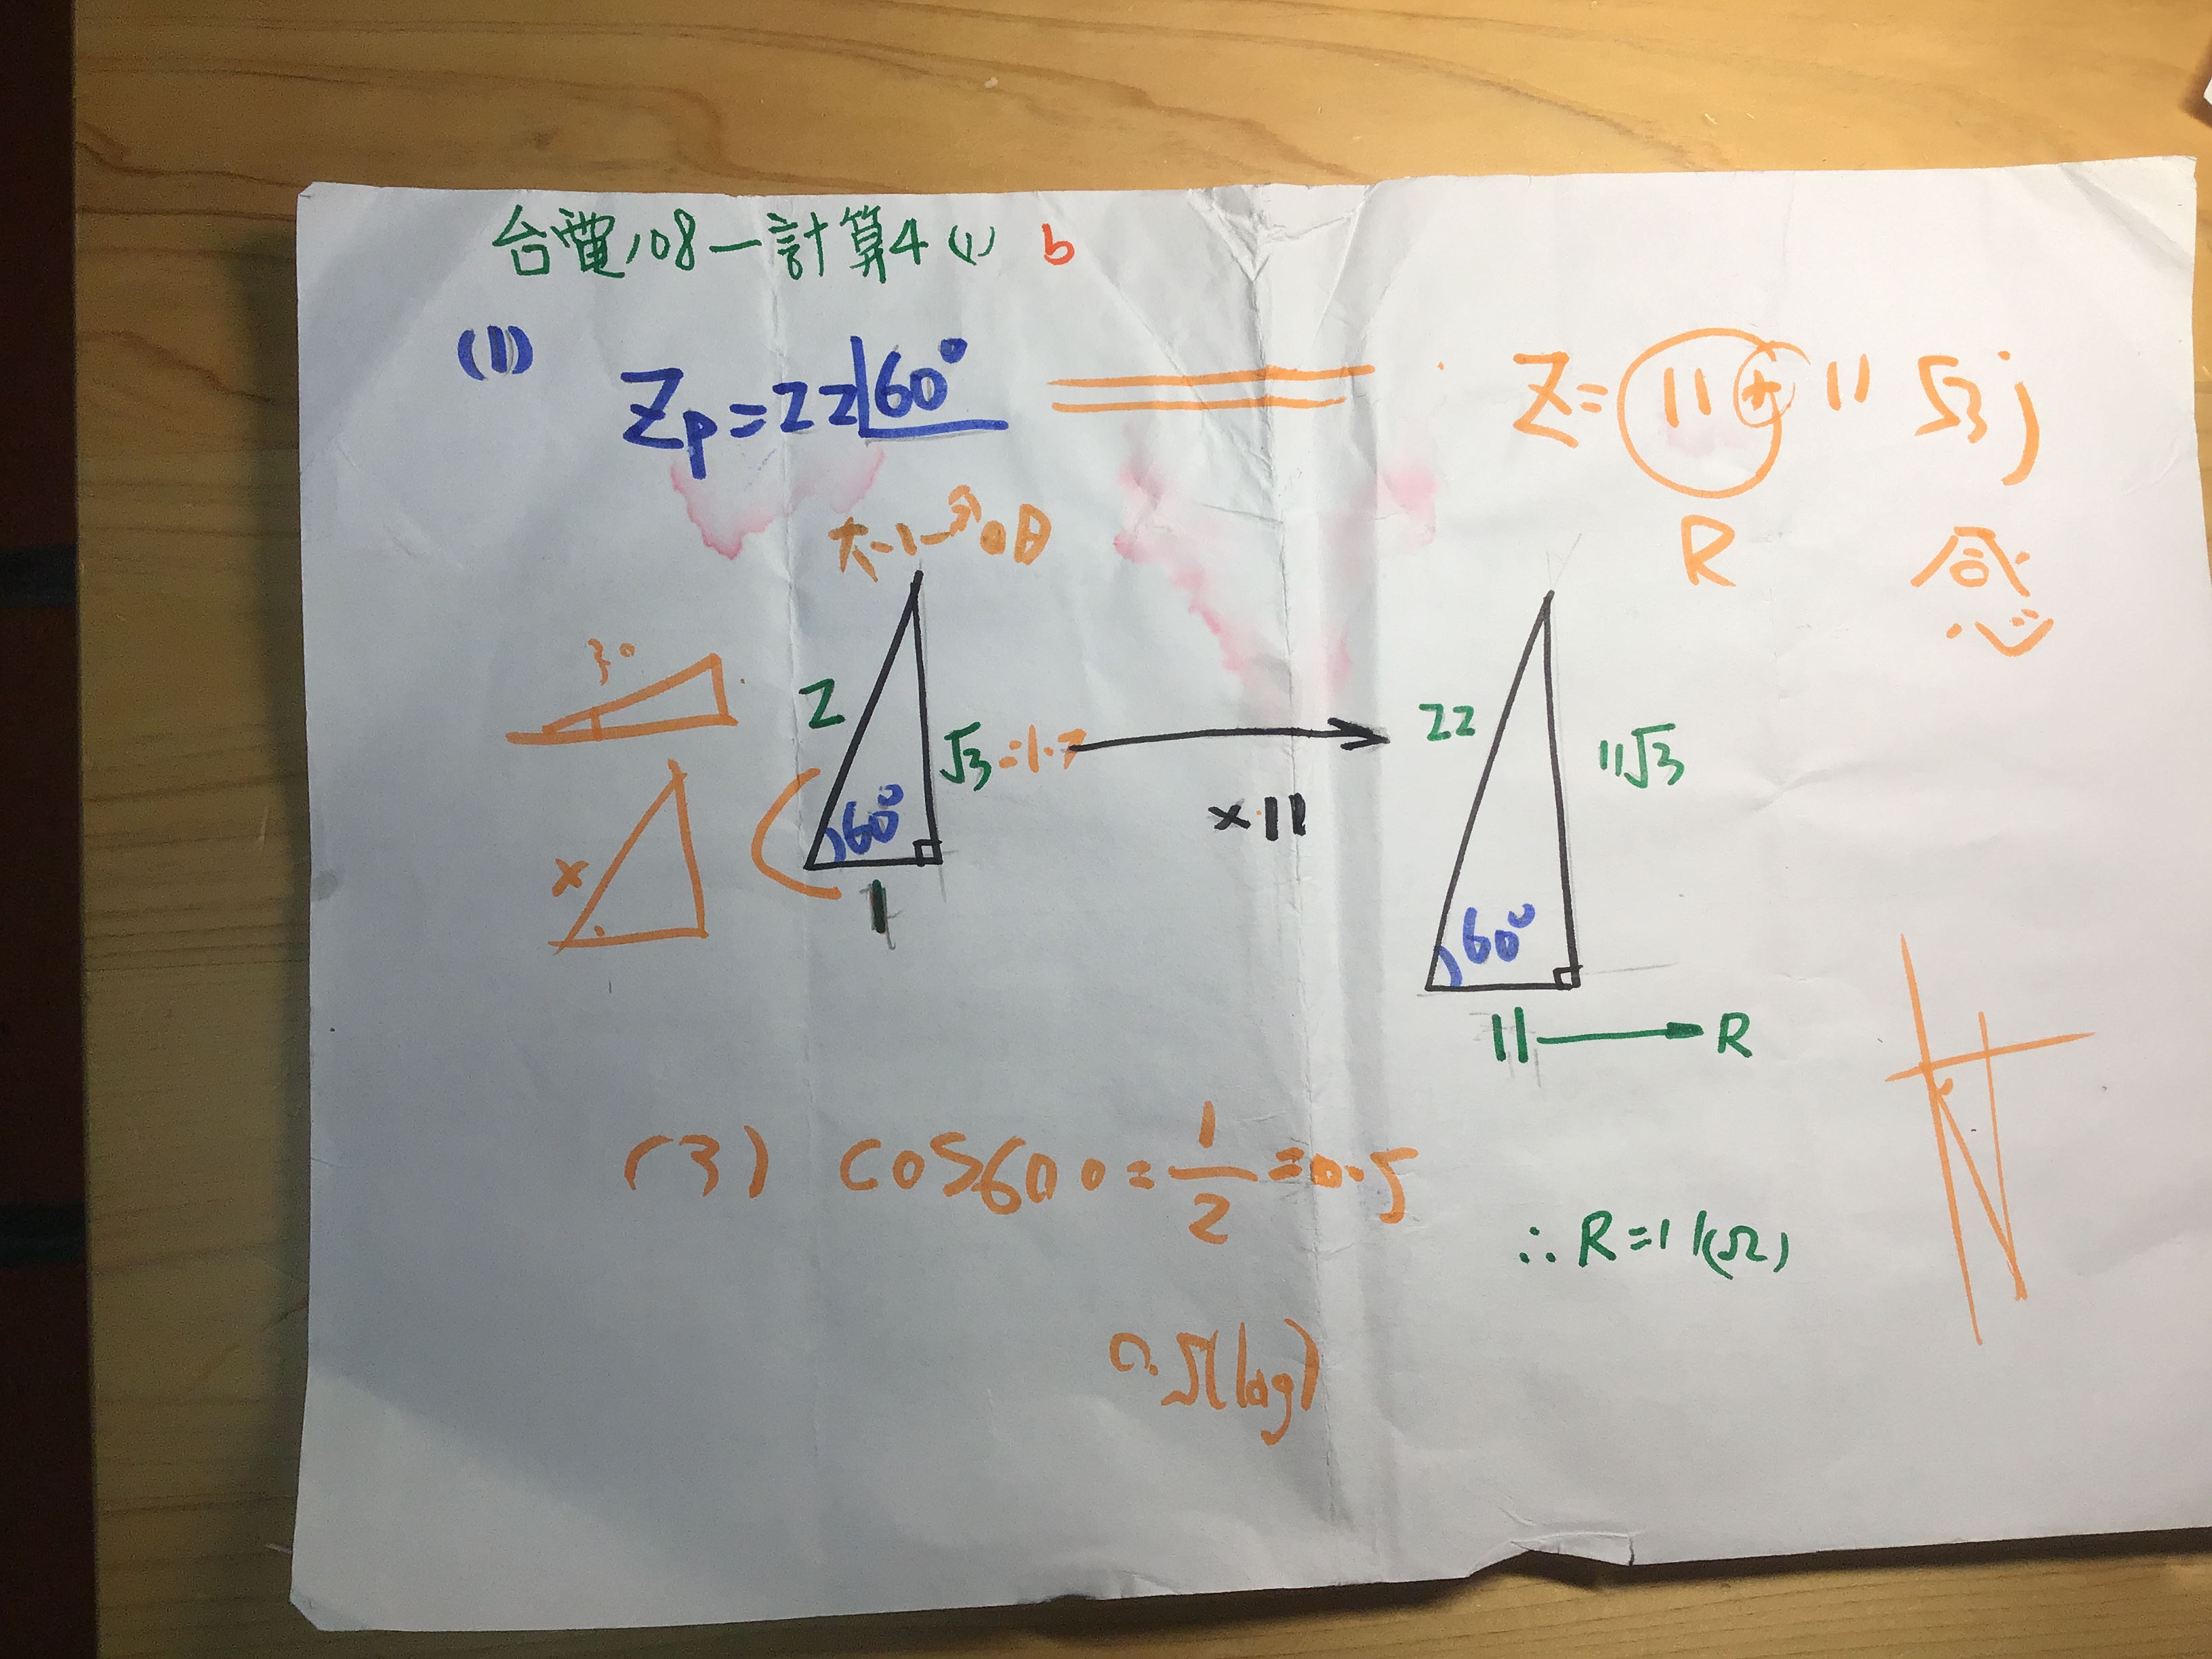 台電108-計算4(1) b
(1)
Zp=22∠60° Z=11+11√3j
R
30
2
√3=1.7
60°
1
x
×11
22
11√3
60°
11→R
(3) cos60°=1/2=0.5
∴R=11(Ω)
0.5(lag)